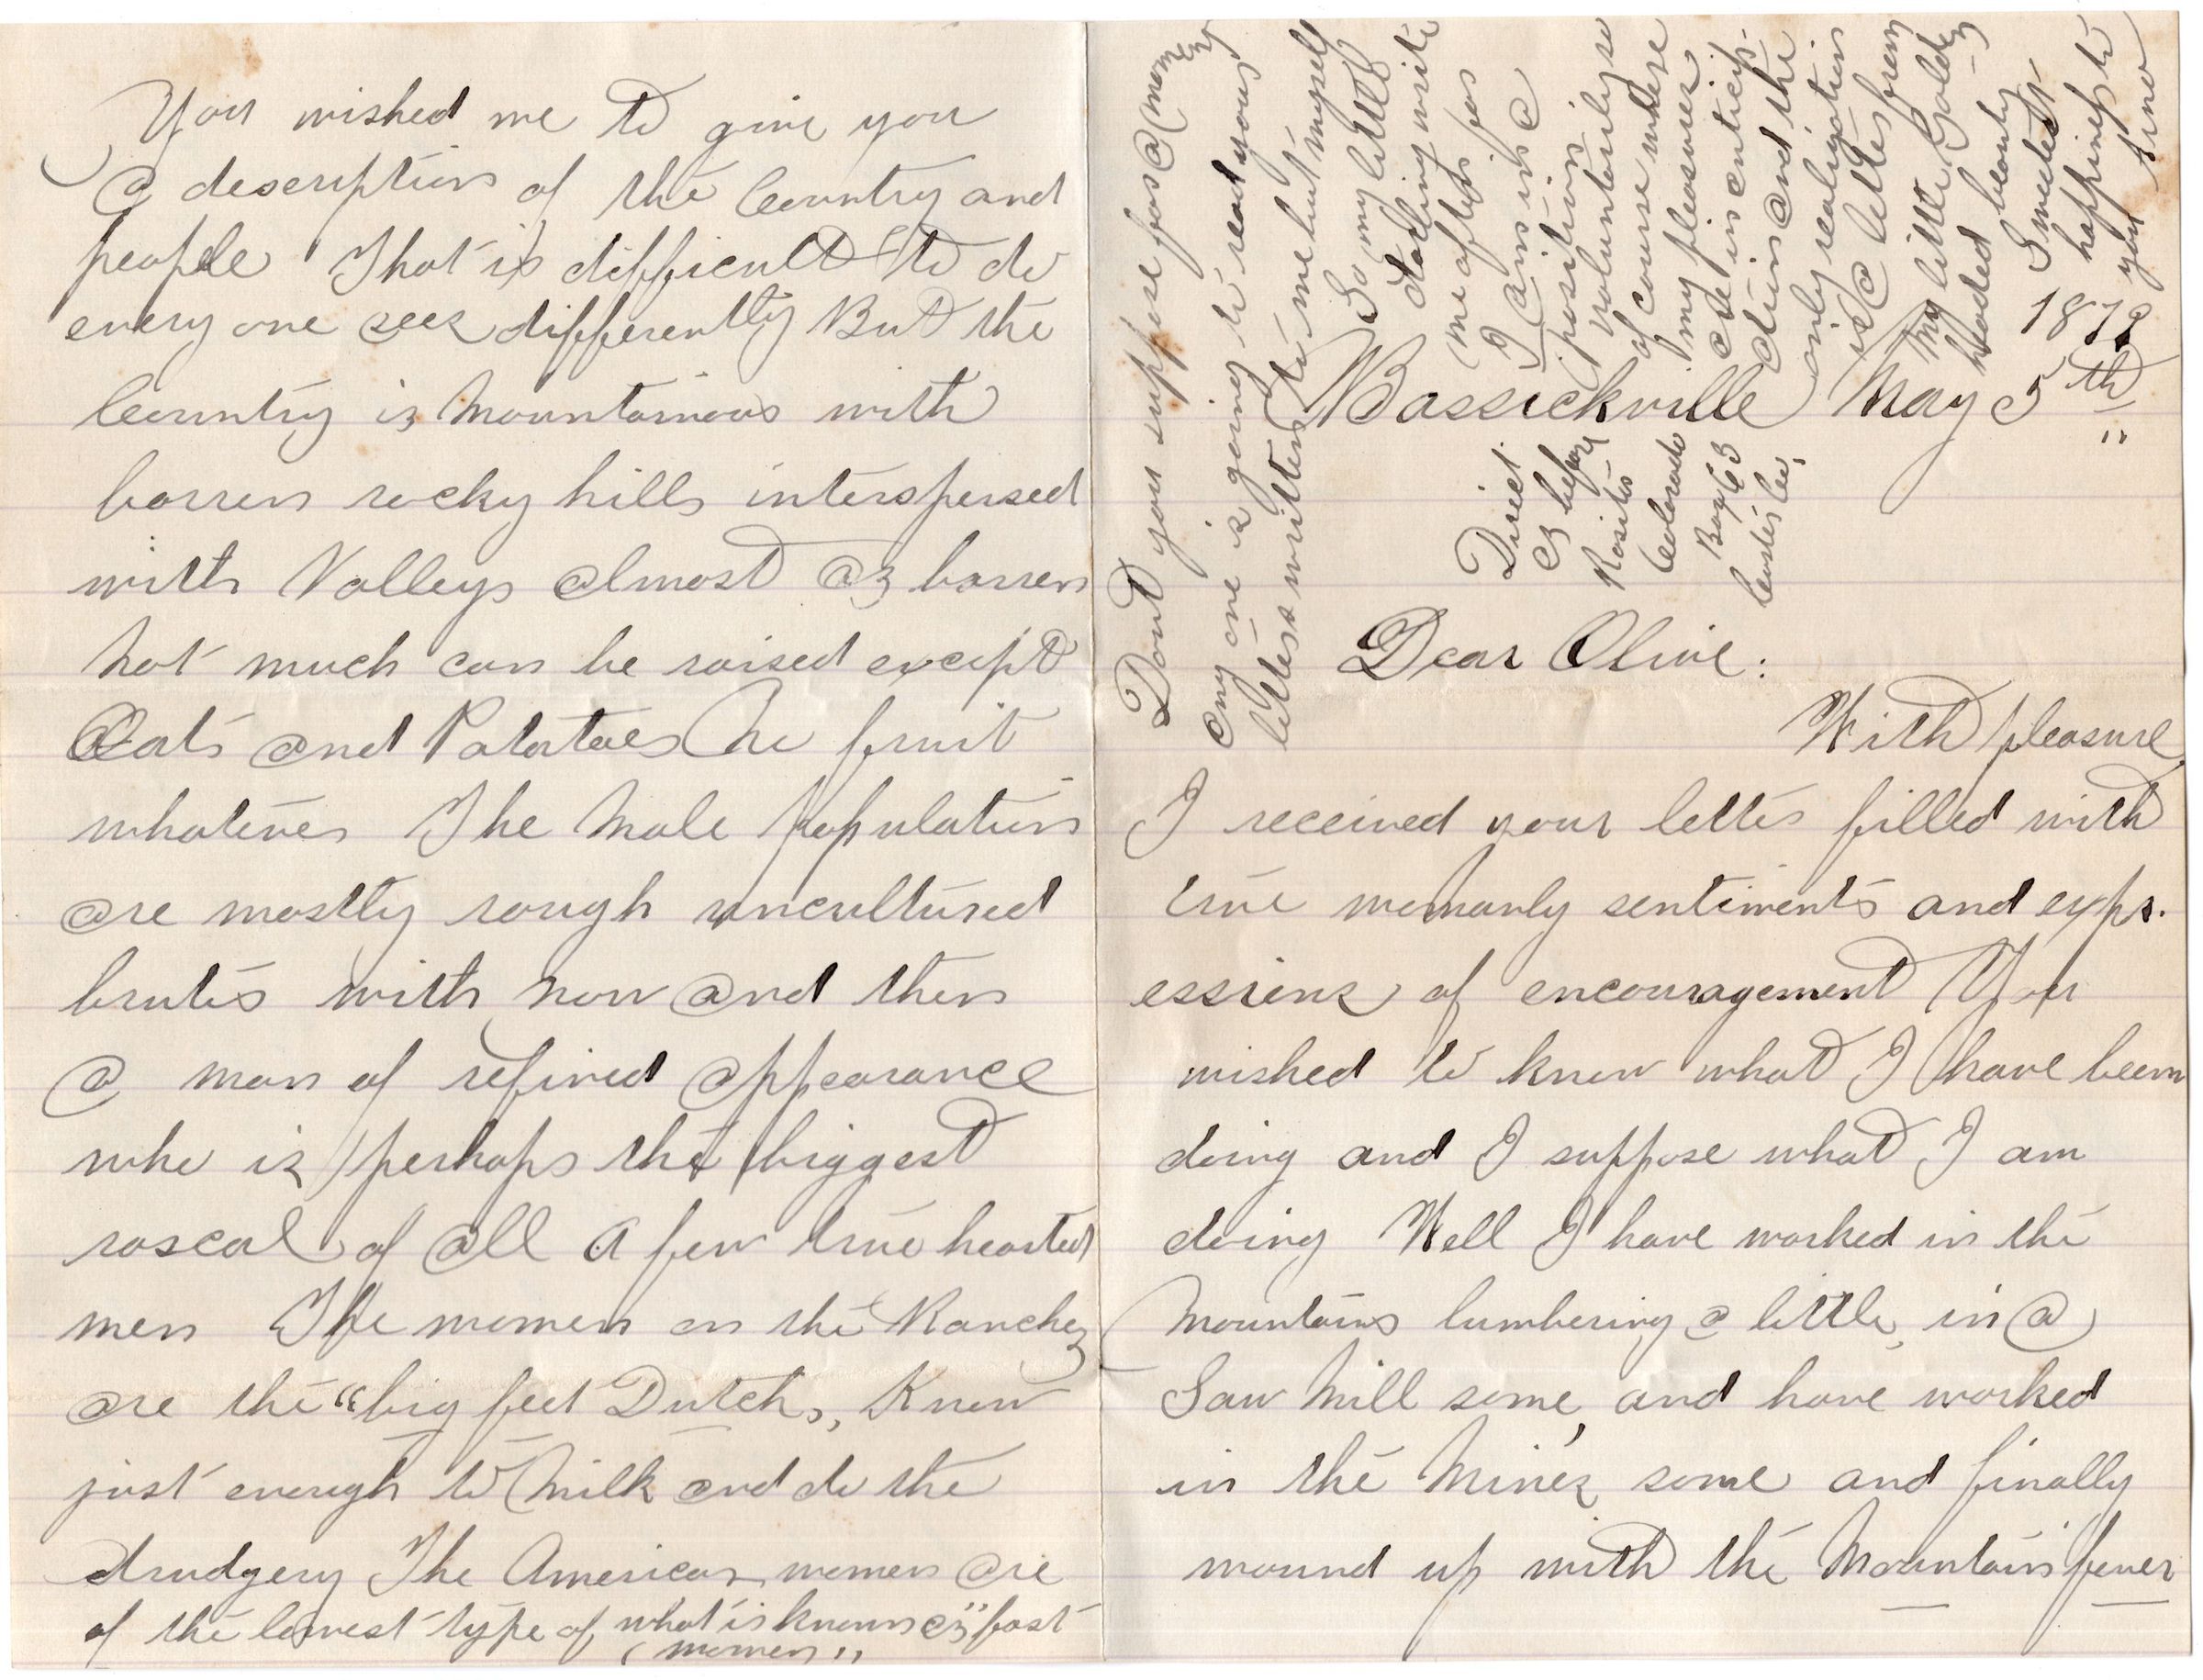 Bassickville May 5th
1878
Direct
as before
Rosita
Colorado
Box 63
Custer Co.
Dear Olive:
With pleasure
I received your letter filled with
true womanly sentiments and expr-
essions of encouragement You
wished to know what I have been
doing and I suppose what I am
doing Well I have worked in the
Mountains lumbering a little, in a
Saw Mill some, and have worked
in the Mines some and finally
wound up with the Mountain fever
Dont you suppose for a moment
any one is going to read your
letters written to me but myself
So my little
darling write
me often for
I am in a
position
voluntarily so
of course where
my pleasures
are in anticip-
ation and the
only realization
is a letter from
My little Golden
hooded beauty
Sweetest
happiness to
you
You wished me to give you
a description of the Country and
people That is difficult to do
every one sees differently But the
Country is Mountainous with
barren rocky hills interspersed
with Valleys almost as barren
not much can be raised except
Oats and Potatoes No fruit
whatever The Male population
are mostly rough uncultured
brutes with now and then
a man of refined appearance
who is perhaps the biggest
rascal of all A few true hearted
men The women on the Ranches
are the "big feet Dutch," Know
just enough to Milk and do the
drudgery The American women are
of the lowest type of what is known as "fast
women"